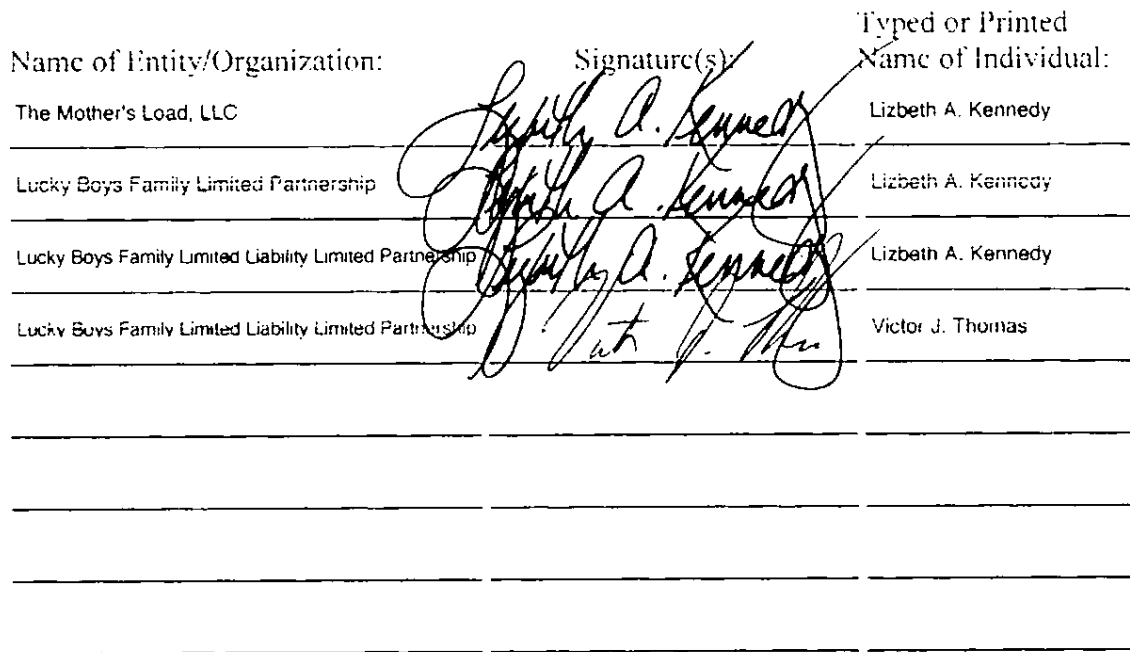 Typed or Printed
Name of Entity/Organization: Signature(s): Name of Individual:
The Mother's Load, LLC Lizbeth A. Kennedy Lizbeth A. Kennedy
Lucky Boys Family Limited Partnership Lizbeth A. Kennedy Lizbeth A. Kennedy
Lucky Boys Family Limited Liability Limited Partnership Lizbeth A. Kennedy Lizbeth A. Kennedy
Lucky Boys Family Limited Liability Limited Partnership Victor J. Thomas